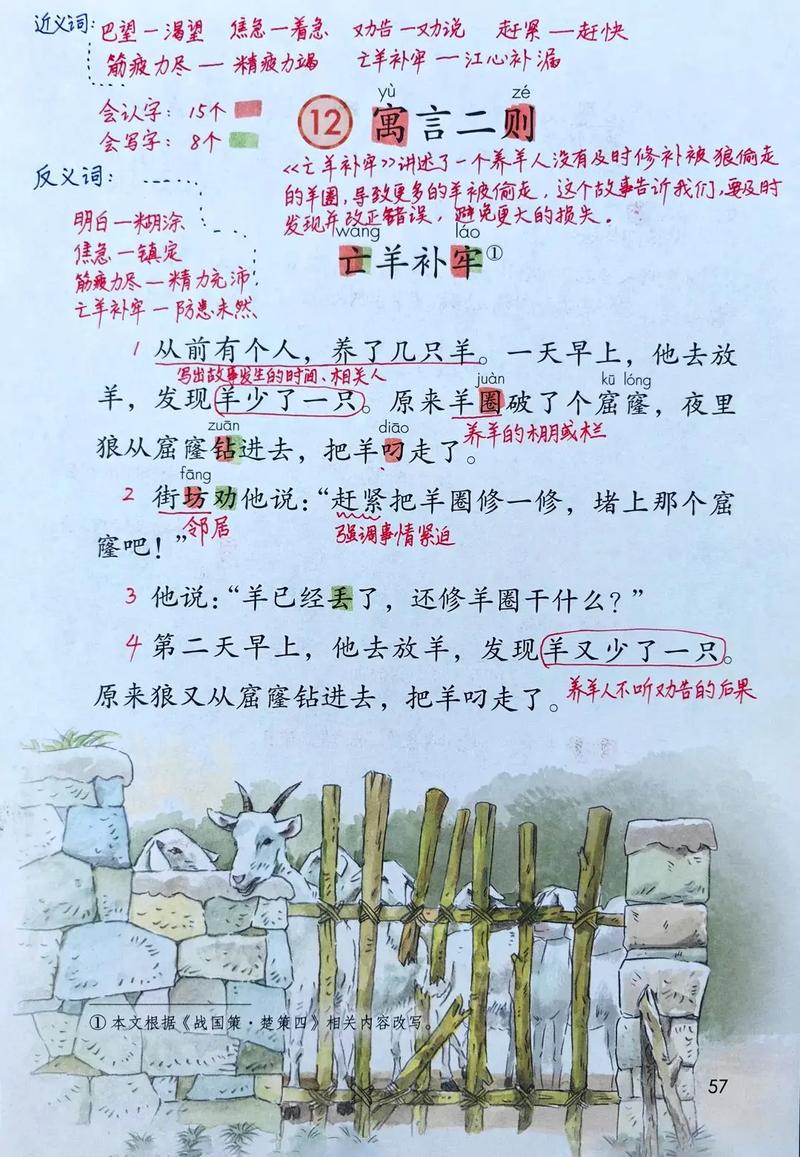 近义词:
巴望一渴望 焦急一着急 劝告一劝说 赶紧—赶快
筋疲力尽— 精疲力竭 亡羊补牢—江心补漏
会认字: 15个
会写字: 8个
yù zé
12 寓言二则
反义词:
《亡羊补牢》讲述了一个养羊人没有及时修补被狼偷走
的羊圈,导致更多的羊被偷走,这个故事告诉我们,要及时
发现并改正错误,避免更大的损失.
明白一糊涂
焦急一镇定
筋疲力尽—精力充沛
亡羊补牢—防患未然
wáng láo
亡羊补牢①
1 从前有个人，养了几只羊。一天早上，他去放
写出故事发生的时间、相关人
juàn kū lóng
羊，发现羊少了一只。原来羊圈破了个窟窿，夜里
养羊的棚或栏
zuān diāo
狼从窟窿钻进去，把羊叼走了。
fāng
2 街坊劝他说：“赶紧把羊圈修一修，堵上那个窟
邻居 强调事情紧迫
窿吧！”
3 他说：“羊已经丢了，还修羊圈干什么？”
4 第二天早上，他去放羊，发现羊又少了一只。
原来狼又从窟窿钻进去，把羊叼走了。
养羊人不听劝告的后果
① 本文根据《战国策·楚策四》相关内容改写。
57